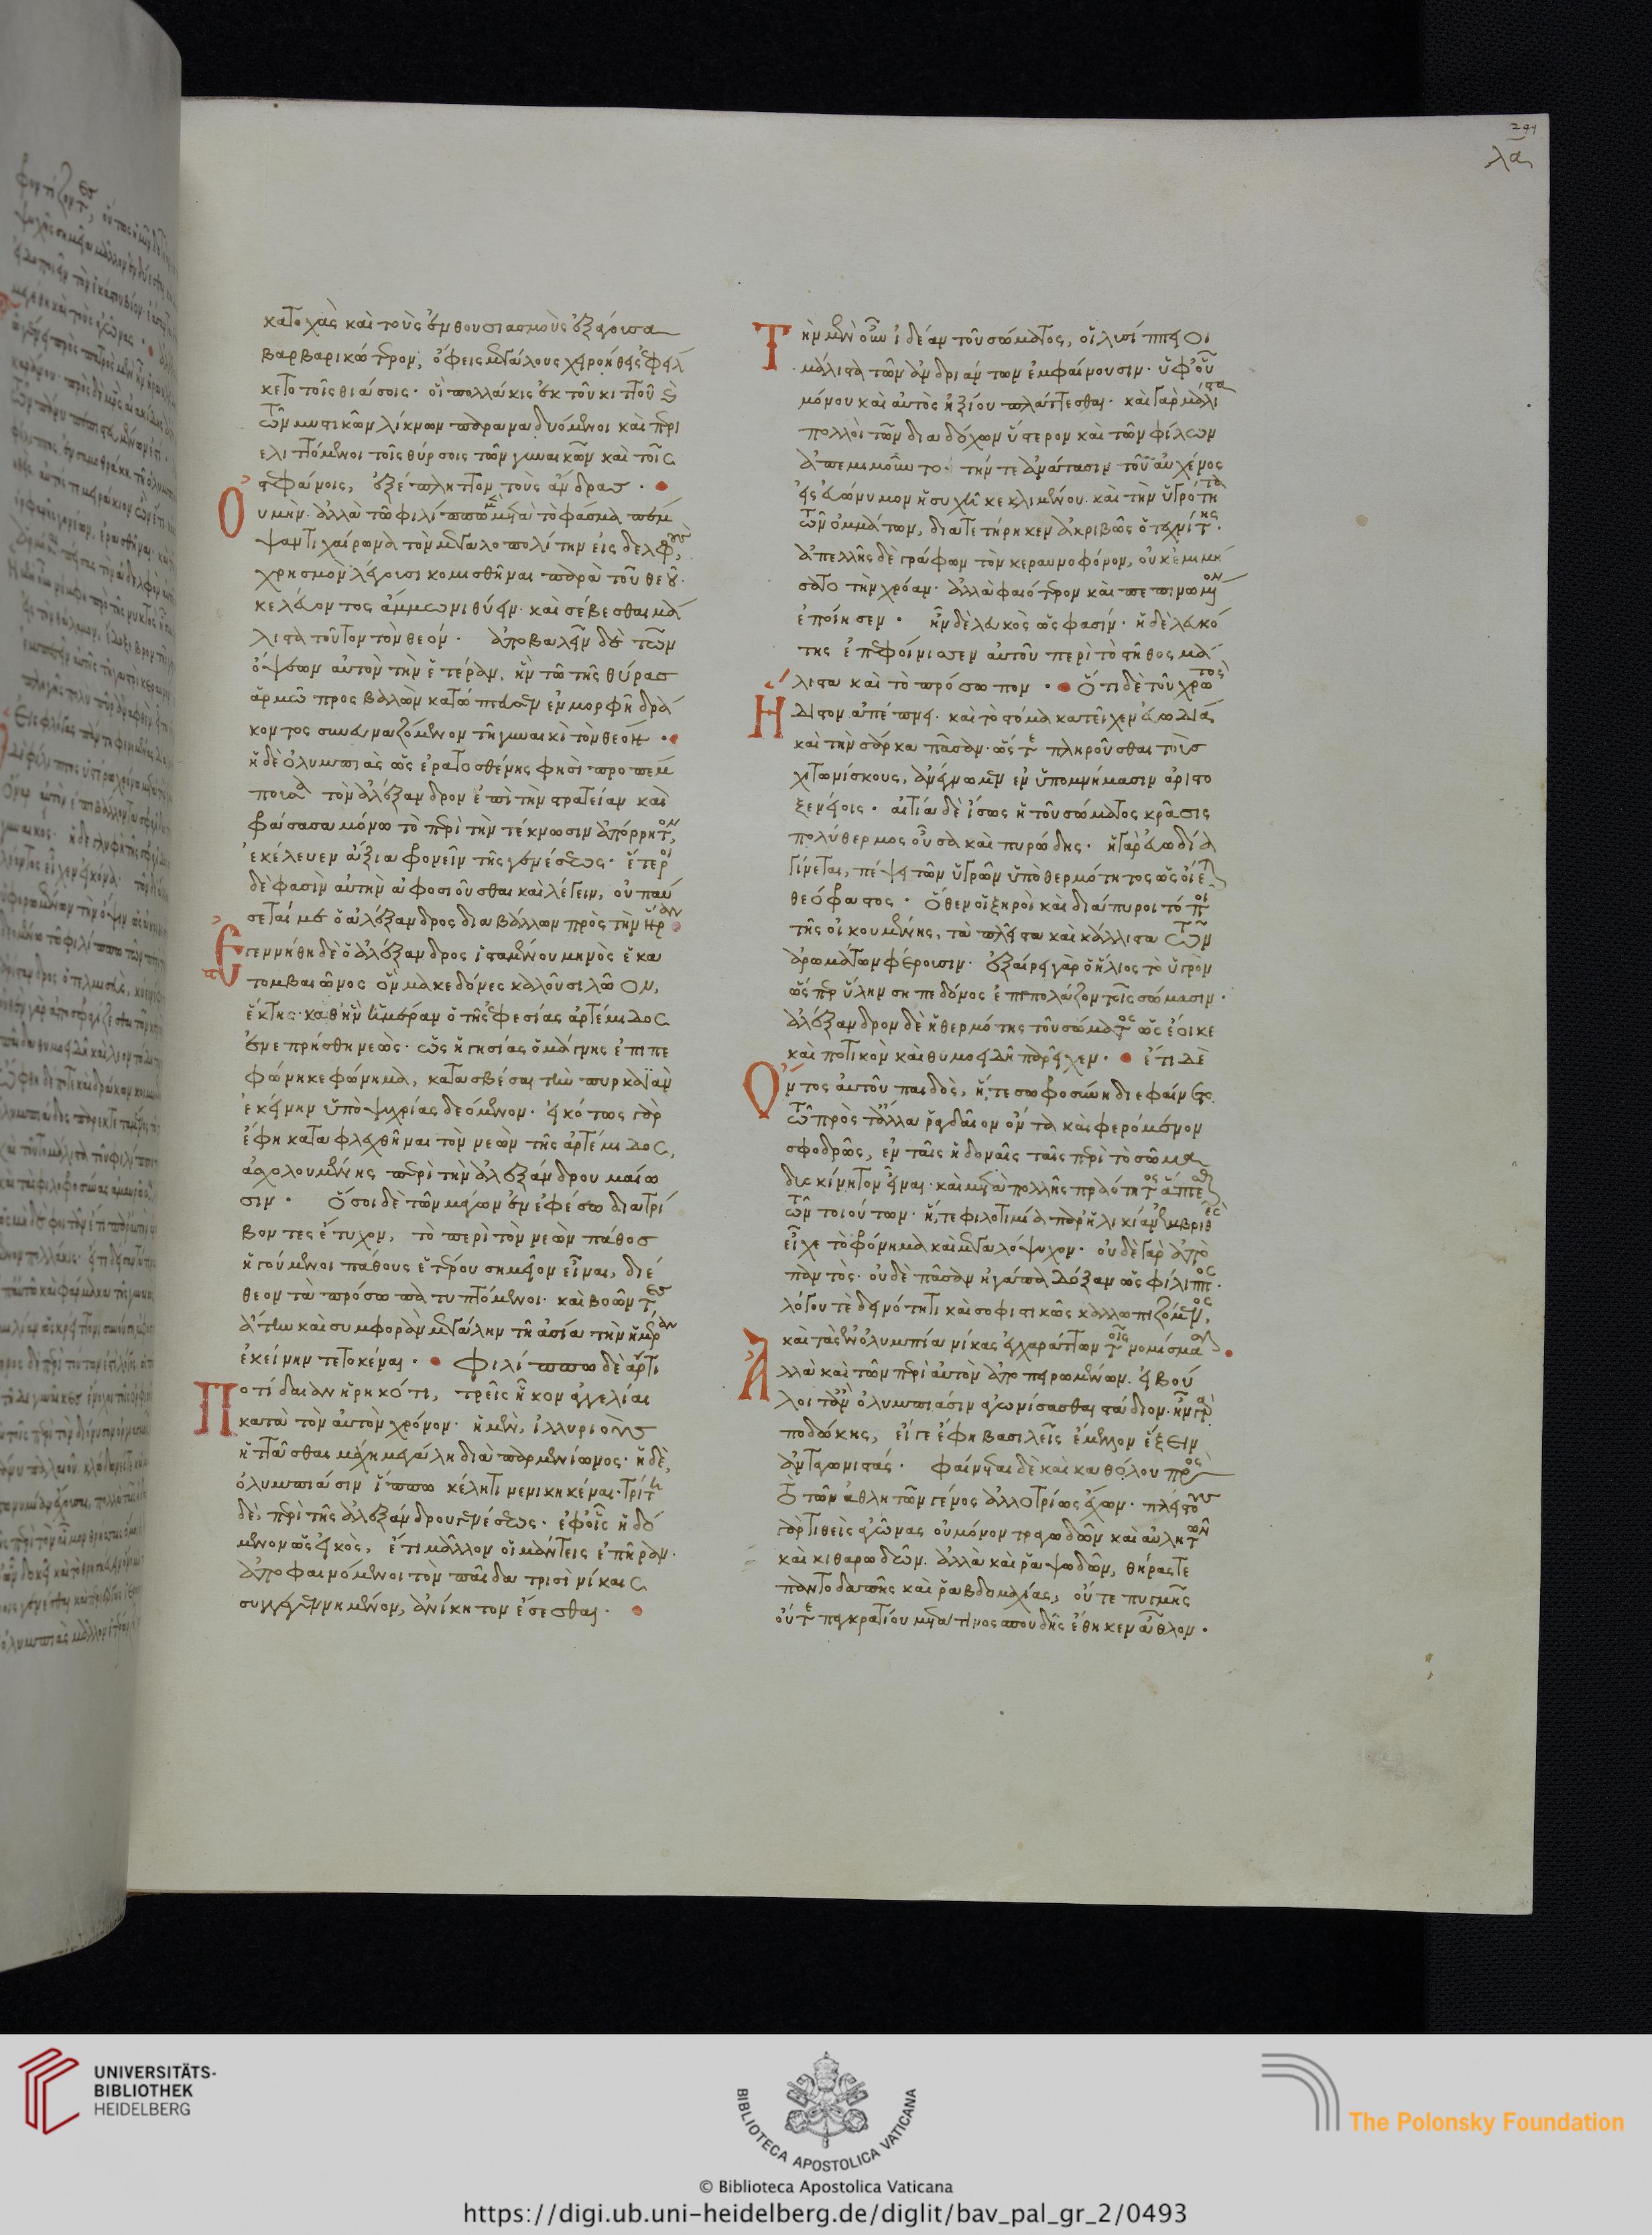 241
λα
κατοχὰς καὶ τοὺς ἐνθουσιασμοὺς ἐξάγουσα
βαρβαρικώτερον, ὄφεις μεγάλους χειροήθεις ἐφείλ
κετο τοῖς θιάσοις· οἳ πολλάκις ἐκ τοῦ κιττοῦ καὶ
τῶν μυστικῶν λίκνων παραναδυόμενοι καὶ περι
ελιττόμενοι τοῖς θύρσοις τῶν γυναικῶν καὶ τοῖς
στεφάνοις, ἐξέπληττον τοὺς ἄνδρας·
Οὐ μὴν ἀλλὰ τῶ φιλίππω μὲν μετὰ τὸ φάσμα πέμ
ψαντι χαίρωνα τὸν μεγαλοπολίτην εἰς δελφοὺς,
χρησμὸν λέγουσι κομισθῆναι παρὰ τοῦ θεοῦ·
κελεύοντος ἄμμωνι θύειν· καὶ σέβεσθαι μά
λιστα τοῦτον τὸν θεόν· ἀποβαλεῖν δὲ τῶν
ὄψεων αὐτὸν τὴν ἑτέραν, ἣν τῶ τῆς θύρας
ἁρμῶ προσβαλὼν κατώπτευσεν ἐν μορφῆ δρά
κοντος συνευναζόμενον τῆ γυναικὶ τὸν θεόν·
ἡ δὲ ὀλυμπιὰς ὡς ἐρατοσθένης φησὶ προπέμ
πουσα τὸν ἀλέξανδρον ἐπὶ τὴν στρατείαν καὶ
φράσασα μόνω τὸ περὶ τὴν τέκνωσιν ἀπόρρητον,
ἐκέλευεν ἄξια φρονεῖν τῆς γενέσεως· ἕτεροι
δὲ φασὶν αὐτὴν ἀφοσιοῦσθαι καὶ λέγειν, οὐ παύ
σεταί με ὁ ἀλέξανδρος διαβάλλων πρὸς τὴν ἥραν
Ἐγεννήθη δὲ ὁ ἀλέξανδρος ἱσταμένου μηνὸς ἑκα
τομβαιῶνος ὃν μακεδόνες καλοῦσι λῶον,
ἕκτης· καθ' ἣν ἡμέραν ὁ τῆς ἐφεσίας ἀρτέμιδος
ἐνεπρήσθη νεώς· ὡς ἡγησίας ὁ μάγνης ἐπιπε
φώνηκε φώνημα, κατασβέσαι τὴν πυρκαϊὰν
ἐκείνην ὑπὸ ψυχρίας δεόμενον· εἰκότως γὰρ
ἔφη καταφλεχθῆναι τὸν νεὼν τῆς ἀρτέμιδος,
ἀσχολουμένης περὶ τὴν ἀλεξάνδρου μαίω
σιν· ὅσοι δὲ τῶν μάγων ἐν ἐφέσω διατρί
βοντες ἔτυχον, τὸ περὶ τὸν νεὼν πάθος
ἡγούμενοι πάθους ἑτέρου σημεῖον εἶναι, διέ
θεον τὰ πρόσωπα τυπτόμενοι· καὶ βοῶντες
ἄτην καὶ συμφορὰν μεγάλην τῆ ἀσία τὴν ἡμέραν
ἐκείνην τετοκέναι· φιλίππω δὲ ἄρτι
Ποτίδαιαν ἡρηκότι, τρεῖς ἧκον ἀγγελίαι
κατὰ τὸν αὐτὸν χρόνον· ἡ μὲν, ἰλλυριοὺς
ἡττᾶσθαι μάχη μεγάλη διὰ παρμενίωνος· ἡ δὲ,
ὀλυμπιάσιν ἵππω κέλητι νενικηκέναι· τρίτη
δὲ, περὶ τῆς ἀλεξάνδρου γενέσεως· ἐφ' οἷς ἡδό
μενον ὡς εἰκός, ἔτι μᾶλλον οἱ μάντεις ἐπῆραν·
ἀποφαινόμενοι τὸν παῖδα τρισὶ νίκαις
συγγεγεννημένον, ἀνίκητον ἔσεσθαι·
Τὴν μὲν οὖν ἰδέαν τοῦ σώματος, οἱ λυσίππειοι
μάλιστα τῶν ἀνδριάντων ἐμφαίνουσιν· ὑφ' οὗ
μόνου καὶ αὐτὸς ἠξίου πλάττεσθαι· καὶ γὰρ μάλιστα
πολλοὶ τῶν διαδόχων ὕστερον καὶ τῶν φίλων
ἀπεμιμοῦντο· τήν τε ἀνάτασιν τοῦ αὐχένος
εἰς εὐώνυμον ἡσυχῆ κεκλιμένου· καὶ τὴν ὑγρότητα
τῶν ὀμμάτων, διατετήρηκεν ἀκριβῶς ὁ τεχνίτης·
ἀπελλῆς δὲ γράφων τὸν κεραυνοφόρον, οὐκ ἐμιμή
σατο τὴν χρόαν· ἀλλὰ φαιότερον καὶ πεπινωμένον
ἐποίησεν· ἦν δὲ λευκὸς ὥς φασίν· ἡ δὲ λευκό
της ἐπεφοίνισσεν αὐτοῦ περὶ τὸ στῆθος μά
λιστα καὶ τὸ πρόσωπον· ὅτι δὲ τοῦ χρωτὸς
Ἥδιστον ἀπέπνει· καὶ τὸ στόμα κατεῖχεν εὐωδία
καὶ τὴν σάρκα πᾶσαν· ὥστε πληροῦσθαι τοὺς
χιτωνίσκους, ἀνέγνωμεν ἐν ὑπομνήμασιν ἀριστο
ξενείοις· αἰτία δὲ ἴσως ἡ τοῦ σώματος κρᾶσις
πολύθερμος οὖσα καὶ πυρώδης· ἡ γὰρ εὐωδία
γίνεται, πέψει τῶν ὑγρῶν ὑπὸ θερμότητος ὡς οἴεται
θεόφραστος· ὅθεν οἱ ξηροὶ καὶ διάπυροι τόποι
τῆς οἰκουμένης, τὰ πλεῖστα καὶ κάλλιστα τῶν
ἀρωμάτων φέρουσιν· ἐξαιρεῖ γὰρ ὁ ἥλιος τὸ ὑγρὸν
ὥσπερ ὕλην σηπεδόνος ἐπιπολάζον τοῖς σώμασιν·
ἀλέξανδρον δὲ ἡ θερμότης τοῦ σώματος ὡς ἔοικε
καὶ ποτικὸν καὶ θυμοειδῆ παρεῖχεν· ἔτι δὲ
Ὄντος αὐτοῦ παιδὸς, ἥ, τε σωφροσύνη διεφαίνετο
τῶ πρὸς τἄλλα ῥαγδαῖον ὄντα καὶ φερόμενον
σφοδρῶς, ἐν ταῖς ἡδοναῖς ταῖς περὶ τὸ σῶμα
δυσκίνητον εἶναι· καὶ μετὰ πολλῆς πραότητος ἅπτεσθαι
τῶν τοιούτων· ἥ, τε φιλοτιμία παρ' ἡλικίαν ἐμβριθὲς
εἶχε τὸ φρόνημα καὶ μεγαλόψυχον· οὐδὲ γὰρ ἀπὸ
παντός· οὐδὲ πᾶσαν ἠγάπα δόξαν ὡς φίλιππος·
λόγου τὲ δεινότητι καὶ σοφιστικῶς καλλωπιζόμενος,
καὶ τὰς ἐν ὀλυμπία νίκας ἐγχαράττων τοῖς νομίσμασιν
Ἀλλὰ καὶ τῶν περὶ αὐτὸν ἀποπειρωμένων· εἰ βού
λοιτ' ἂν ὀλυμπιάσιν ἀγωνίσασθαι στάδιον· ἦν γὰρ
ποδώκης, εἴγε ἔφη βασιλεῖς ἔμελλον ἕξειν
ἀνταγωνιστάς· φαίνεται δὲ καὶ καθόλου πρὸς
τὸ τῶν ἀθλητῶν γένος ἀλλοτρίως ἔχων· πλείστους
γὰρ τιθεὶς ἀγῶνας οὐ μόνον τραγωδῶν καὶ αὐλητῶν
καὶ κιθαρωδῶν· ἀλλὰ καὶ ῥαψωδῶν, θήρας τε
παντοδαπῆς καὶ ῥαβδομαχίας, οὔτε πυγμῆς
οὔτε παγκρατίου μετά τινος σπουδῆς ἔθηκεν ἆθλον·
UNIVERSITÄTS-
BIBLIOTHEK
HEIDELBERG
BIBLIOTECA APOSTOLICA VATICANA
The Polonsky Foundation
© Biblioteca Apostolica Vaticana
https://digi.ub.uni-heidelberg.de/diglit/bav_pal_gr_2/0493